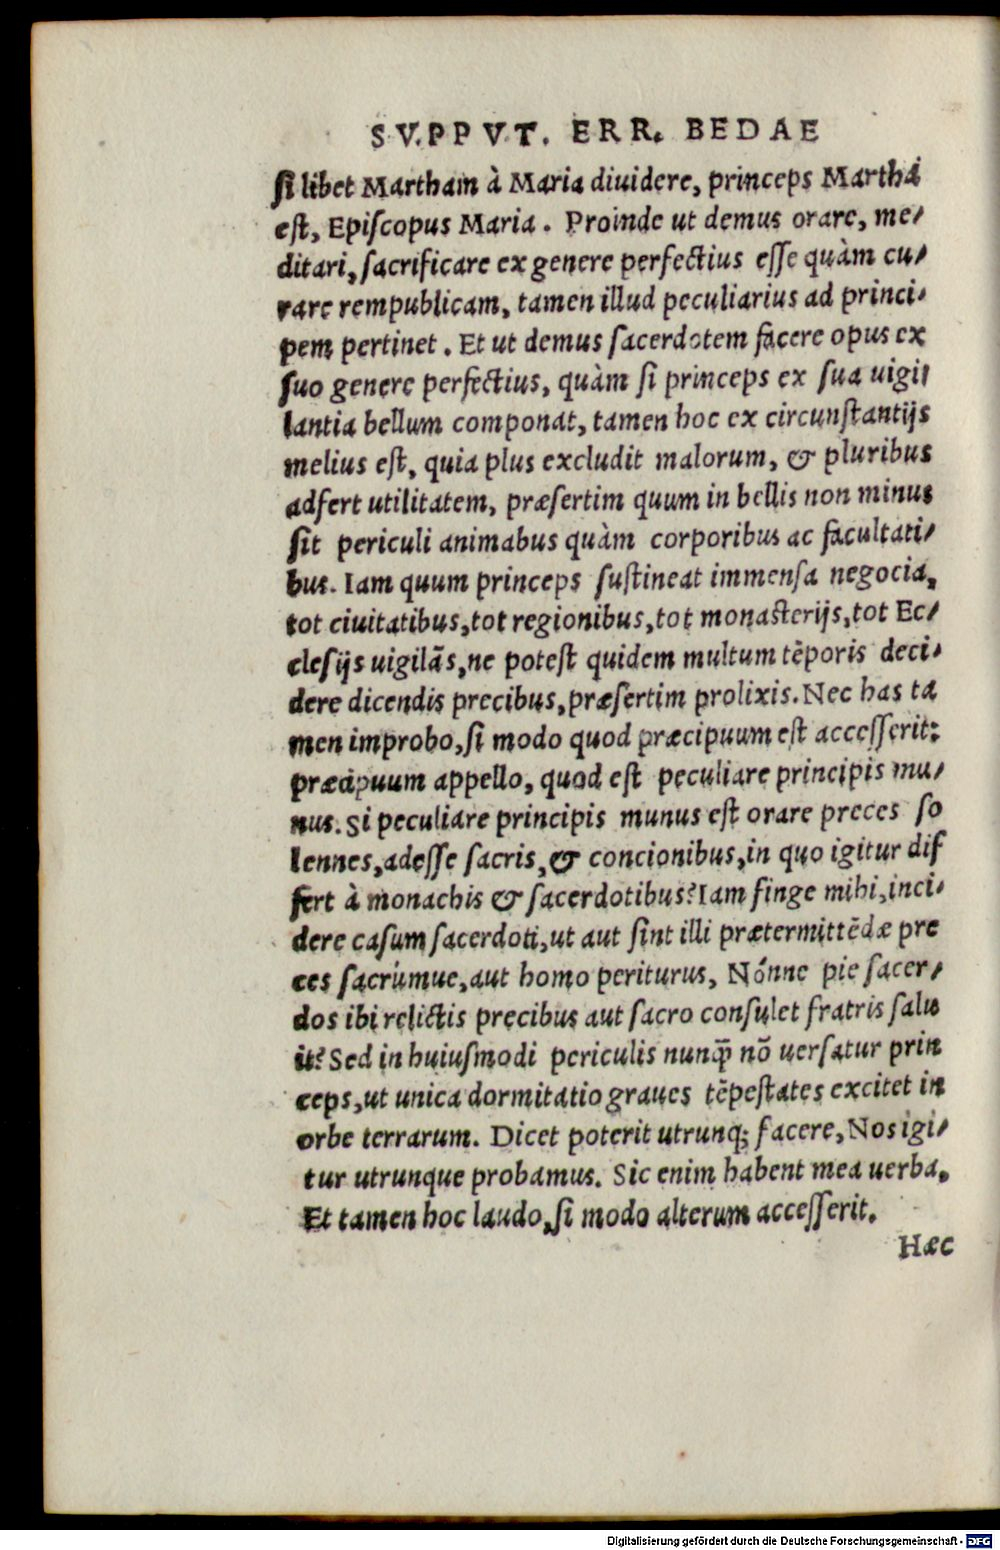 SVPPVT. ERR. BEDAE
ſi libet Martham à Maria diuidere, princeps Martha
eſt, Epiſcopus Maria. Proinde ut demus orare, me-
ditari, ſacrificare ex genere perfectius eſſe quàm cu-
rare rempublicam, tamen illud peculiarius ad princi-
pem pertinet. Et ut demus ſacerdotem facere opus ex
ſuo genere perfectius, quàm ſi princeps ex ſua uigi-
lantia bellum componat, tamen hoc ex circunſtantijs
melius eſt, quia plus excludit malorum, & pluribus
adfert utilitatem, præſertim quum in bellis non minus
ſit periculi animabus quàm corporibus ac facultati-
bus. Iam quum princeps ſuſtineat immenſa negocia,
tot ciuitatibus, tot regionibus, tot monaſterijs, tot Ec-
cleſijs uigilãs, ne poteſt quidem multum tẽporis deci-
dere dicendis precibus, præſertim prolixis. Nec has ta
men improbo, ſi modo quod præcipuum eſt acceſſerit:
præcipuum appello, quod eſt peculiare principis mu-
nus. Si peculiare principis munus eſt orare preces ſo
lennes, adeſſe ſacris, & concionibus, in quo igitur dif
fert à monachis & ſacerdotibus? Iam finge mihi, inci-
dere caſum ſacerdoti, ut aut ſint illi prætermittẽdæ pre
ces ſacrúmue, aut homo periturus, Nónne pie ſacer-
dos ibi relictis precibus aut ſacro conſulet fratris ſalu
ti? Sed in huiuſmodi periculis nunq̃ nõ uerſatur prin
ceps, ut unica dormitatio graues tẽpeſtates excitet in
orbe terrarum. Dicet poterit utrunq; facere, Nos igi-
tur utrunque probamus. Sic enim habent mea uerba.
Et tamen hoc laudo, ſi modo alterum acceſſerit.
Hæc
Digitalisierung gefördert durch die Deutsche Forschungsgemeinschaft - DFG